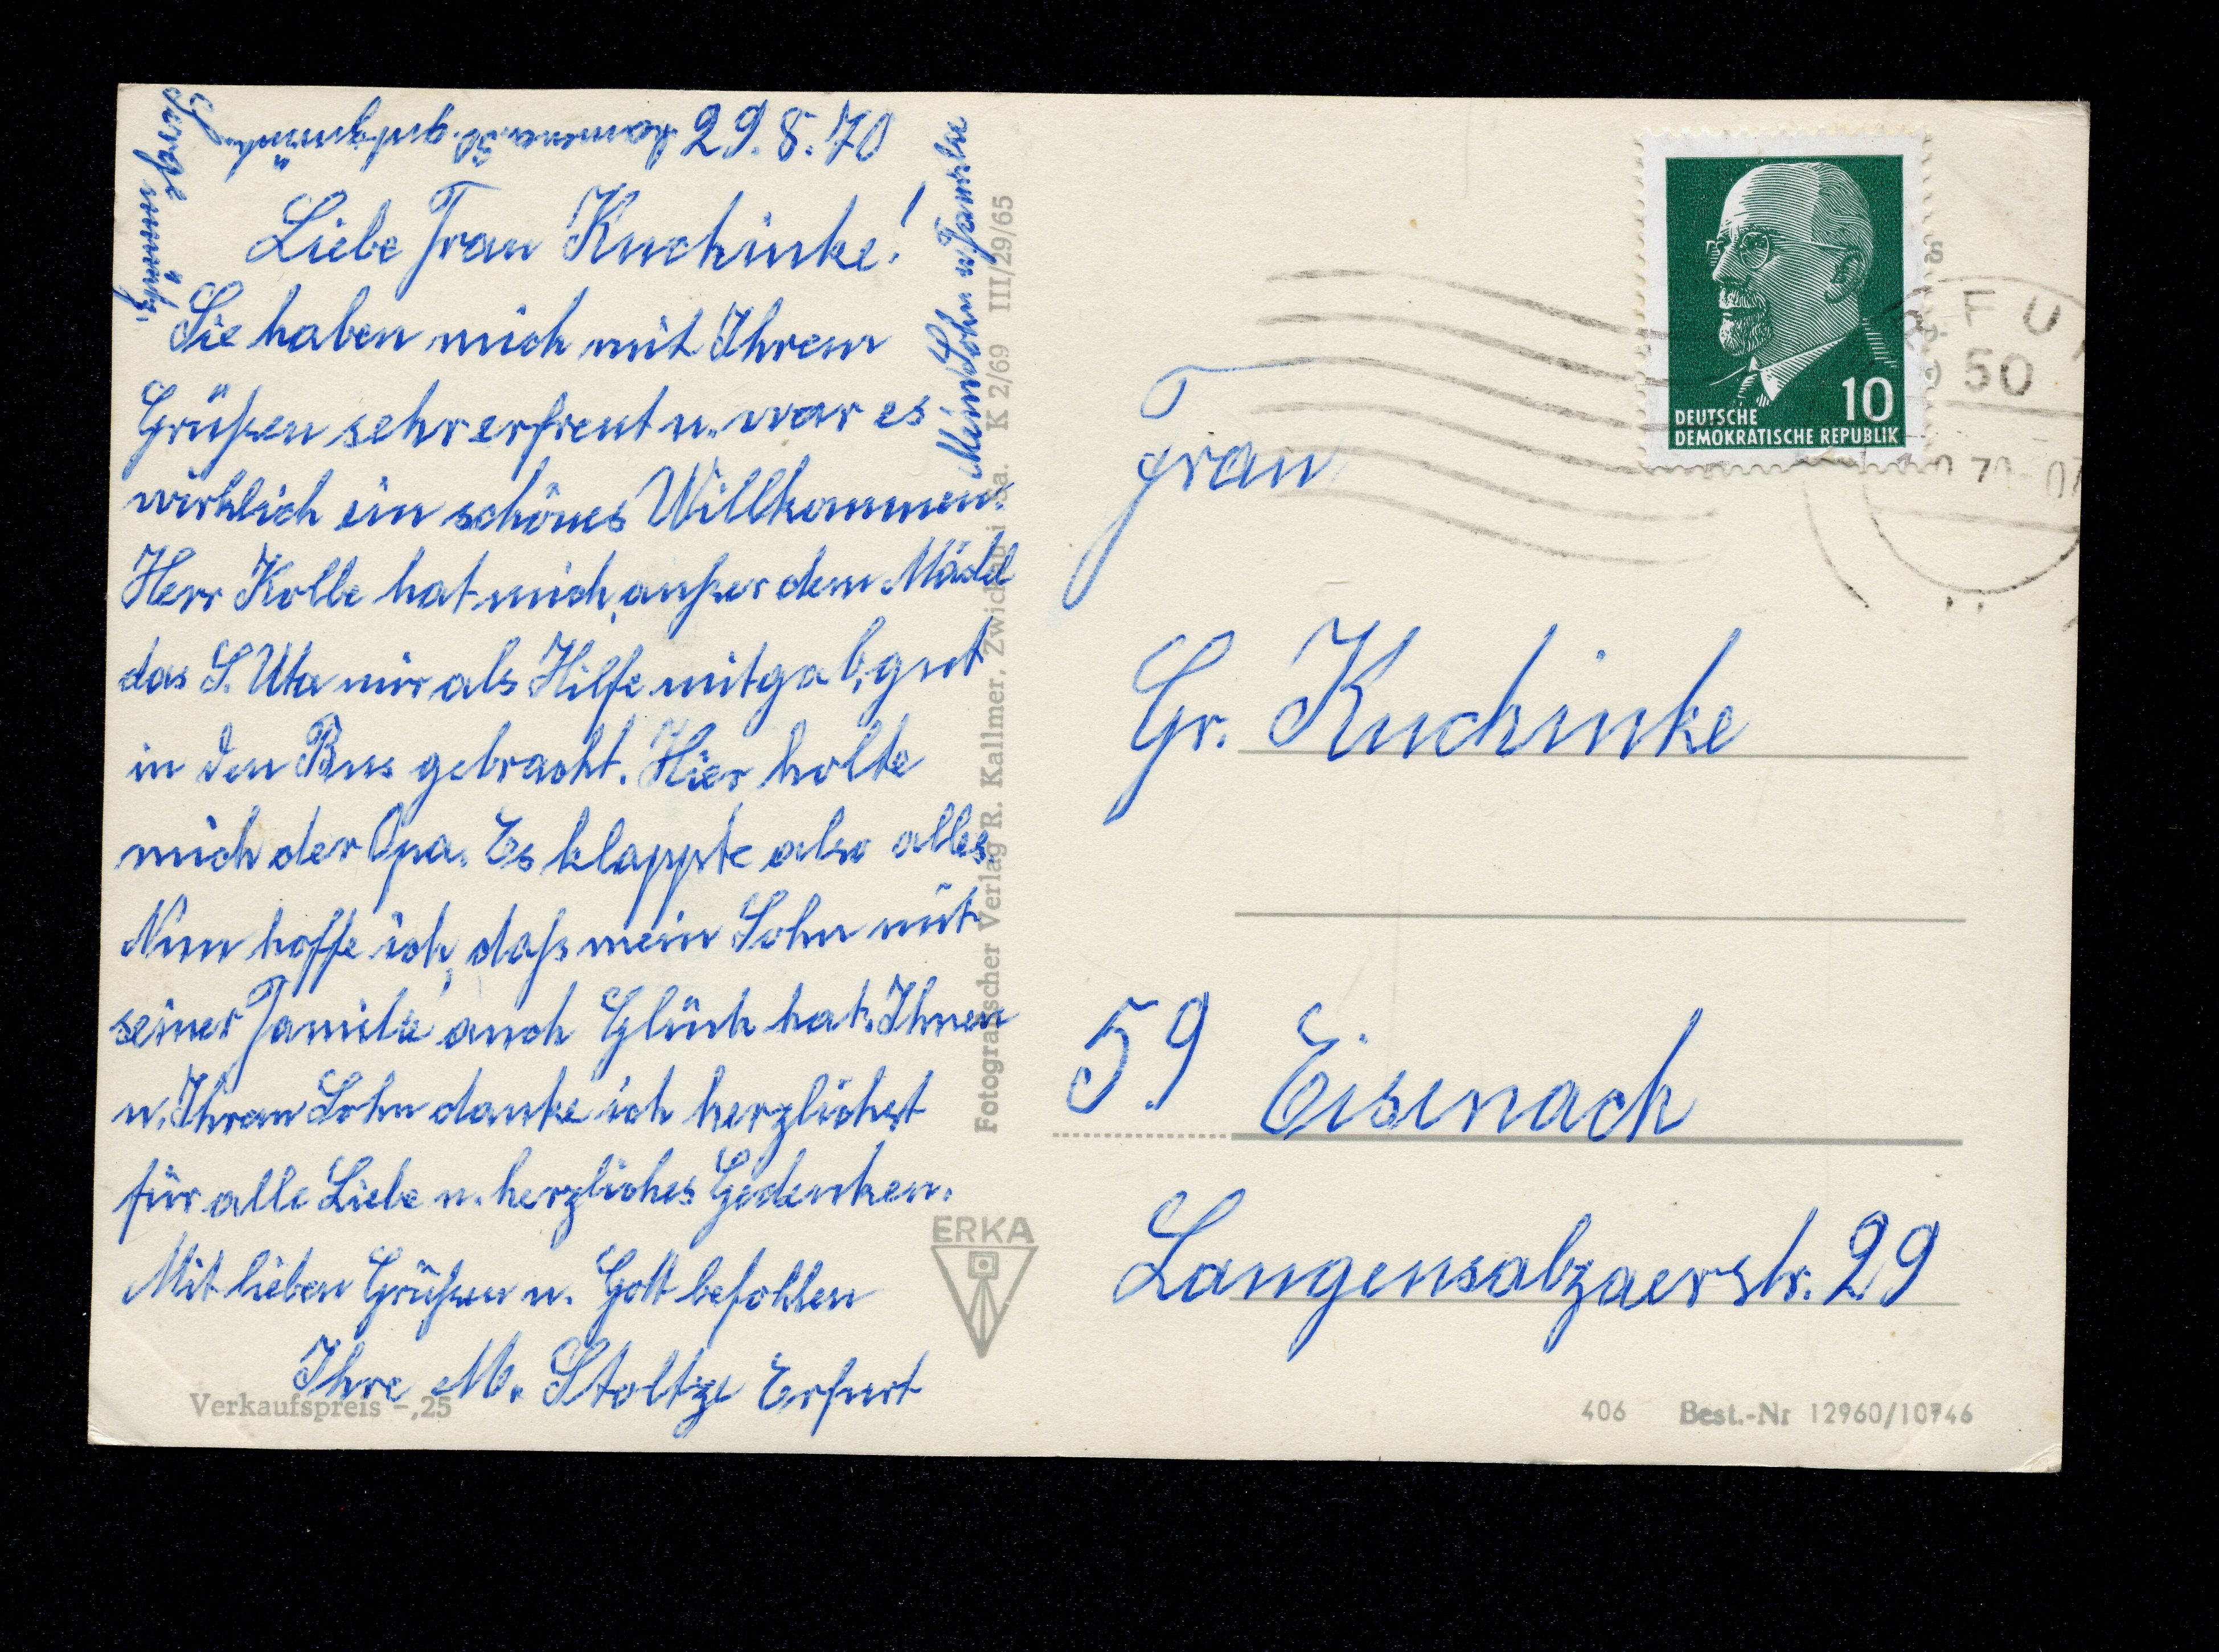 29.8.70
Liebe Frau Kuchinke!
Sie haben mich mit Ihren
Grüßen sehr erfreut u. war es
wirklich ein schönes Willkommen.
Herr Kolbe hat mich, außer dem Mädel
das S. Uta mir als Hilfe mitgab, gut
in den Bus gebracht. Hier holte
mich der Opa. Es klappte also alles.
Nun hoffe ich, daß mein Sohn mit
seiner Familie auch Glück hat. Ihnen
u. Ihrem Sohn danke ich herzlichst
für alle Liebe u. herzliches Gedenken.
Mit lieben Grüßen u. Gott befohlen
Ihre M. Stoltze Erfurt
Mein Sohn u. Familie
kommen a. 30. und
Verkaufspreis -,25
Fotografischer Verlag R. Kallmer, Zwickau i. Sa. K 2/69 III/29/65
ERKA
DEUTSCHE
DEMOKRATISCHE REPUBLIK
10
50
Frau
Gr. Kuchinke
59 Eisenach
Langensalzaerstr. 29
406 Best.-Nr 12960/10746